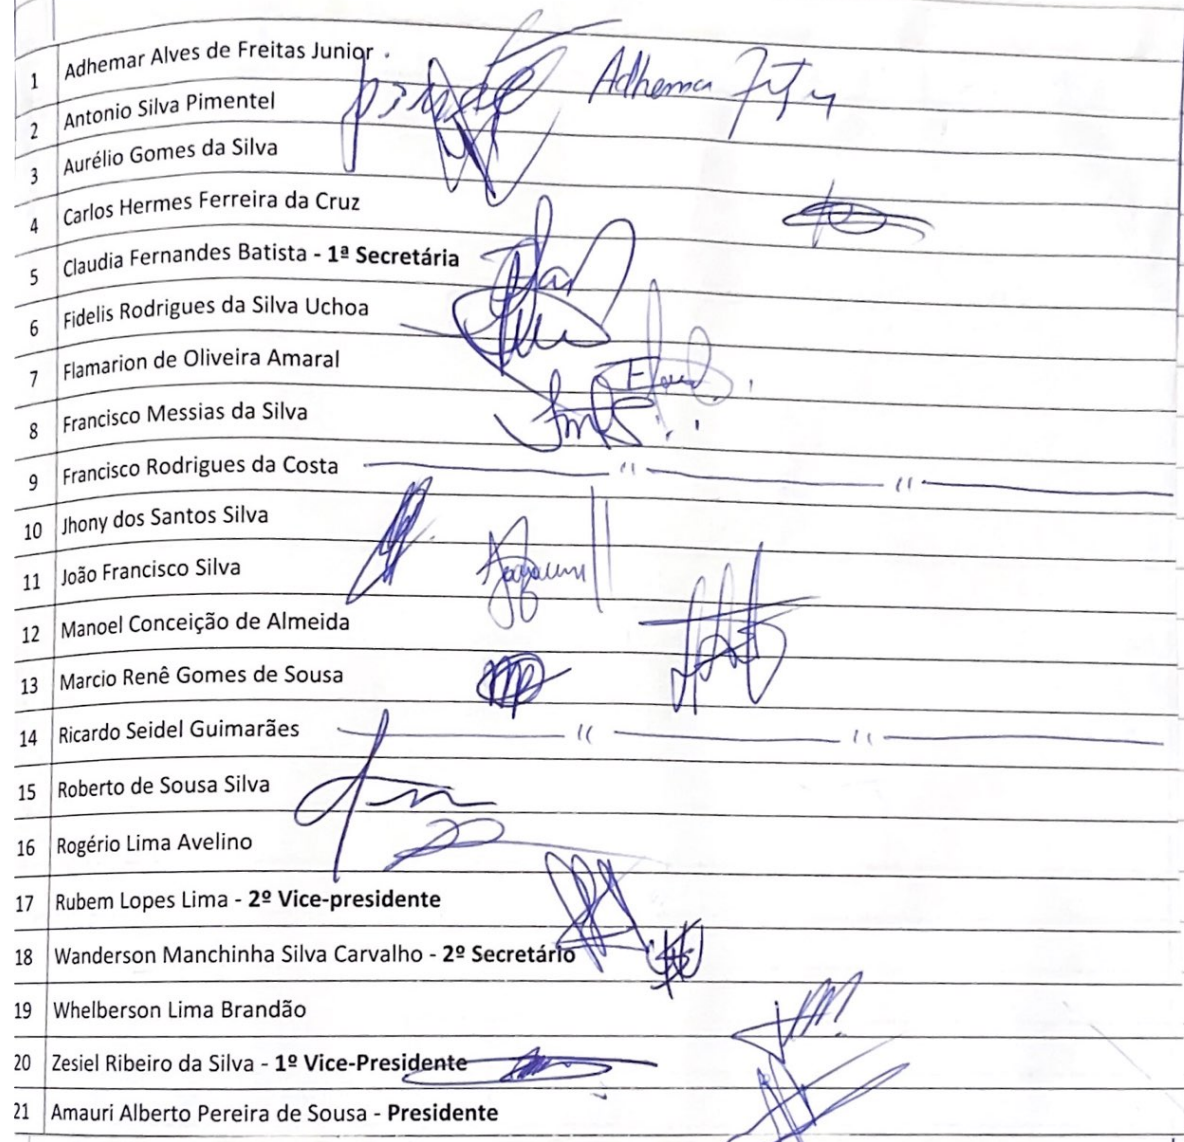 1 Adhemar Alves de Freitas Junior . Adhemar
2 Antonio Silva Pimentel
3 Aurélio Gomes da Silva
4 Carlos Hermes Ferreira da Cruz
5 Claudia Fernandes Batista - 1ª Secretária
6 Fidelis Rodrigues da Silva Uchoa
7 Flamarion de Oliveira Amaral
8 Francisco Messias da Silva
9 Francisco Rodrigues da Costa
10 Jhony dos Santos Silva
11 João Francisco Silva
12 Manoel Conceição de Almeida
13 Marcio Renê Gomes de Sousa
14 Ricardo Seidel Guimarães
15 Roberto de Sousa Silva
16 Rogério Lima Avelino
17 Rubem Lopes Lima - 2º Vice-presidente
18 Wanderson Manchinha Silva Carvalho - 2º Secretário
19 Whelberson Lima Brandão
20 Zesiel Ribeiro da Silva - 1º Vice-Presidente
21 Amauri Alberto Pereira de Sousa - Presidente